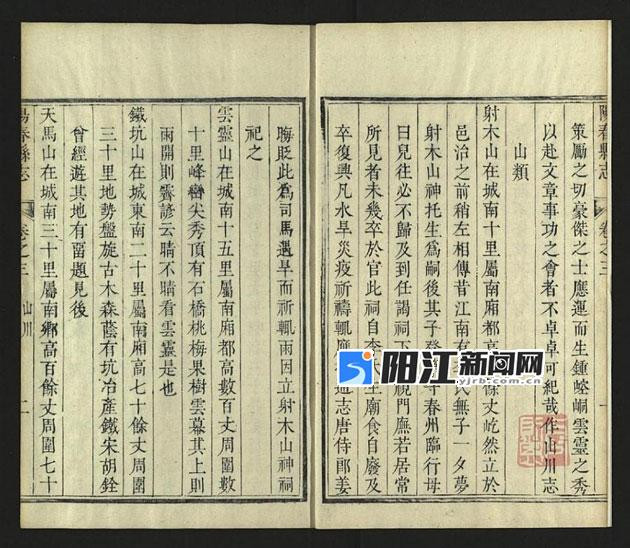 陽春縣志 卷之三
策勵之切豪傑之士應運而生鍾崆峒雲靈之秀
以赴文章事功之會者不卓卓可紀哉作山川志
山類
射木山在城南十里屬南廂都高餘丈屹然立於
邑治之前稍左相傳昔江南有氏無子一夕夢
射木山神托生為嗣後其子登春州臨行母
曰兒往必不歸及到任謁祠下視門廡若居常
所見者未幾卒於官此祠自李生廟食自廢及
卒復興凡水旱災疫祈禱輒應通志唐侍郎姜
晦貶此為司馬遇旱而祈輒雨因立射木山神祠
祀之
雲靈山在城南十五里屬南廂都高數百丈周圍數
十里峰巒尖秀頂有石橋桃梅果樹雲幕其上則
雨開則霽諺云晴不晴看雲靈是也
鐵坑山在城東南二十里屬南廂高七十餘丈周圍
三十里地勢盤旋古木森蔭有坑冶產鐵宋胡銓
曾經遊其地有留題見後
天馬山在城南三十里屬南鄉高百餘丈周圍七十
陽春縣志 卷之三 山川 二
阳江新闻网
yjrb.com.cn